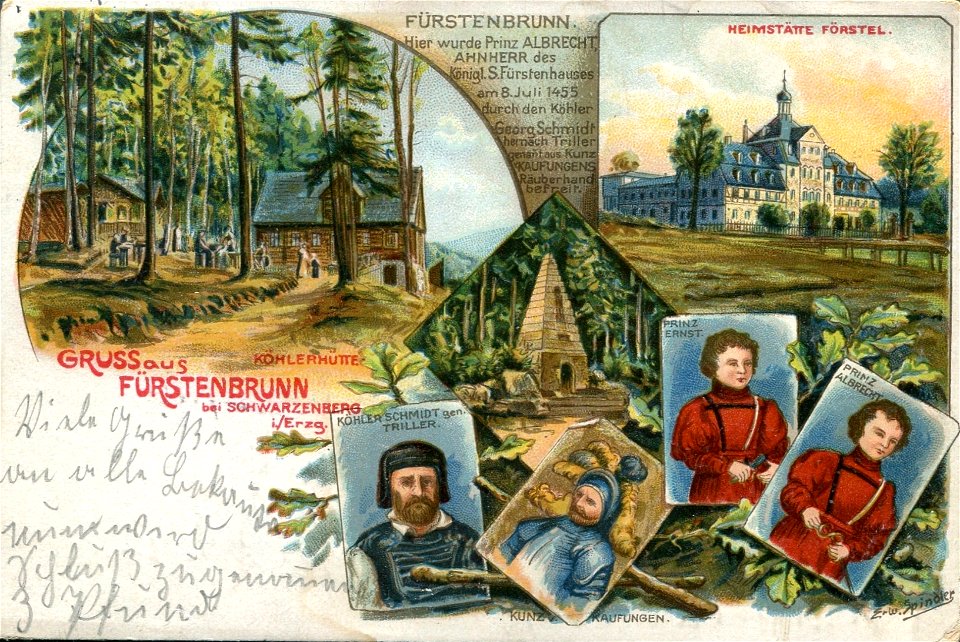 FÜRSTENBRUNN.
Hier wurde Prinz ALBRECHT
AHNHERR des
Königl. S. Fürstenhauses
am 8. Juli 1455
durch den Köhler
Georg Schmidt
hernach Triller
genannt aus Kunz
KAUFUNGENS
Räuberhand
befreit.
HEIMSTÄTTE FÖRSTEL.
KÖHLERHÜTTE
GRUSS aus
FÜRSTENBRUNN
bei SCHWARZENBERG
i/Erzg.
Viele Grüße
an alle Bekannte
nun wird
Schluß
3 Pfund
KÖHLER SCHMIDT gen.
TRILLER.
KUNZ KAUFUNGEN.
PRINZ
ERNST.
PRINZ
ALBRECHT
E.W. Spindler